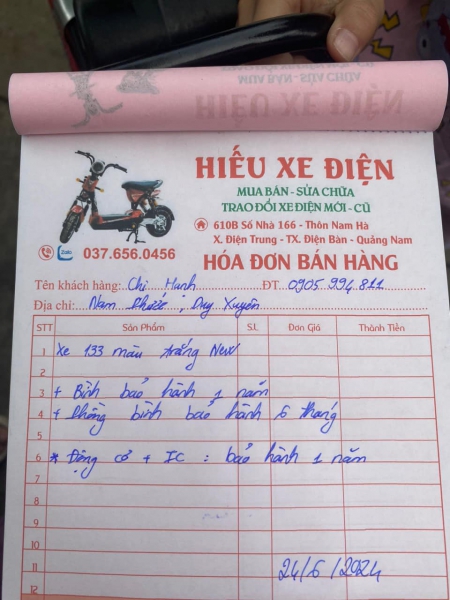 HIẾU XE ĐIỆN
MUA BÁN - SỬA CHỮA
TRAO ĐỔI XE ĐIỆN MỚI - CŨ
610B Số Nhà 166 - Thôn Nam Hà
X. Điện Trung - TX. Điện Bàn - Quảng Nam
Zalo 037.656.0456
HÓA ĐƠN BÁN HÀNG
Tên khách hàng: Chị Hạnh ĐT 0905 994 811
Địa chỉ: Nam Phước, Duy Xuyên
STT Sản Phẩm S.L Đơn Giá Thành Tiền
1 Xe 133 màu trắng New
2
3 + Bình bảo hành 1 năm
4 + Phồng bình bảo hành 6 tháng
5
6 * Động cơ + IC : bảo hành 1 năm
7
8
9
10
11 24/6/2024
12